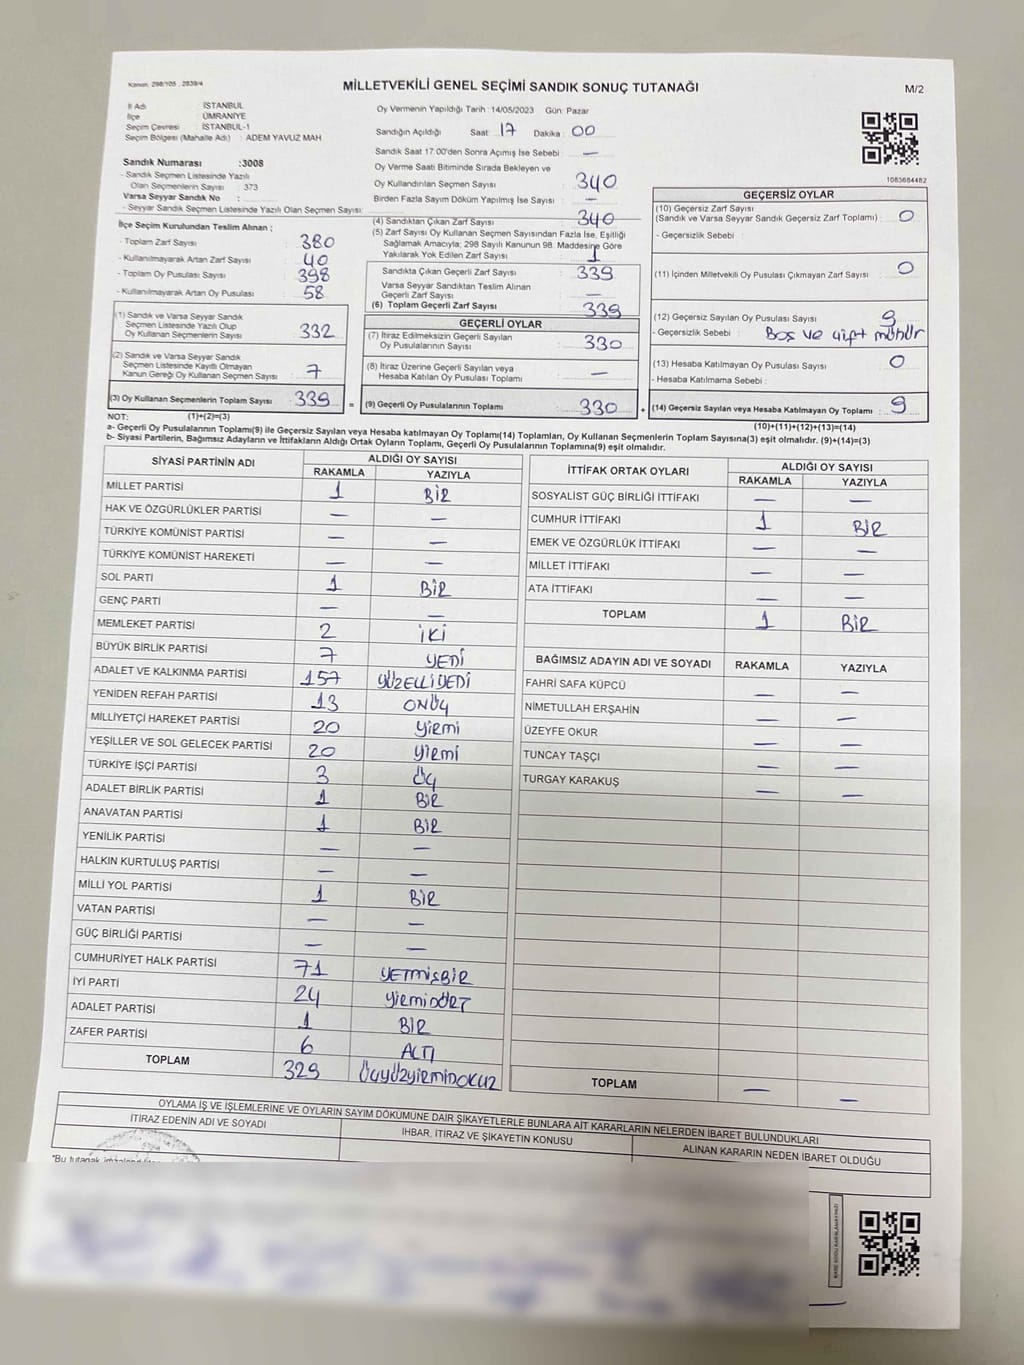 Kanun: 298/105 , 2839/4
MİLLETVEKİLİ GENEL SEÇİMİ SANDIK SONUÇ TUTANAĞI
M/2
İl Adı : İSTANBUL
İlçe : ÜMRANİYE
Seçim Çevresi : İSTANBUL-1
Seçim Bölgesi (Mahalle Adı) : ADEM YAVUZ MAH
Sandık Numarası :3008
- Sandık Seçmen Listesinde Yazılı
Olan Seçmenlerin Sayısı : 373
Varsa Seyyar Sandık No :
- Seyyar Sandık Seçmen Listesinde Yazılı Olan Seçmen Sayısı:
İlçe Seçim Kurulundan Teslim Alınan ;
- Toplam Zarf Sayısı : 380
- Kullanılmayarak Artan Zarf Sayısı : 40
- Toplam Oy Pusulası Sayısı : 398
- Kullanılmayarak Artan Oy Pusulası : 58
(1) Sandık ve Varsa Seyyar Sandık
Seçmen Listesinde Yazılı Olup
Oy Kullanan Seçmenlerin Sayısı : 332
(2) Sandık ve Varsa Seyyar Sandık
Seçmen Listesinde Kayıtlı Olmayan
Kanun Gereği Oy Kullanan Seçmen Sayısı : 7
(3) Oy Kullanan Seçmenlerin Toplam Sayısı : 339
Oy Vermenin Yapıldığı Tarih :14/05/2023 Gün: Pazar
Sandığın Açıldığı Saat : 17 Dakika : 00
Sandık Saat 17:00'den Sonra Açılmış İse Sebebi : —
Oy Verme Saati Bitiminde Sırada Bekleyen ve
Oy Kullandırılan Seçmen Sayısı : 340
Birden Fazla Sayım Döküm Yapılmış İse Sayısı : —
(4) Sandıktan Çıkan Zarf Sayısı : 340
(5) Zarf Sayısı Oy Kullanan Seçmen Sayısından Fazla İse, Eşitliği
Sağlamak Amacıyla; 298 Sayılı Kanunun 98. Maddesine Göre
Yakılarak Yok Edilen Zarf Sayısı : 1
Sandıkta Çıkan Geçerli Zarf Sayısı : 339
Varsa Seyyar Sandıktan Teslim Alınan
Geçerli Zarf Sayısı : —
(6) Toplam Geçerli Zarf Sayısı : 339
GEÇERLİ OYLAR
(7) İtiraz Edilmeksizin Geçerli Sayılan
Oy Pusulalarının Sayısı : 330
(8) İtiraz Üzerine Geçerli Sayılan veya
Hesaba Katılan Oy Pusulası Toplamı : —
= (9) Geçerli Oy Pusulalarının Toplamı : 330 +
1083684482
GEÇERSİZ OYLAR
(10) Geçersiz Zarf Sayısı
(Sandık ve Varsa Seyyar Sandık Geçersiz Zarf Toplamı) : 0
- Geçersizlik Sebebi :
(11) İçinden Milletvekili Oy Pusulası Çıkmayan Zarf Sayısı : 0
(12) Geçersiz Sayılan Oy Pusulası Sayısı : 9
- Geçersizlik Sebebi : Boş ve çift mühür
(13) Hesaba Katılmayan Oy Pusulası Sayısı : 0
- Hesaba Katılmama Sebebi :
(14) Geçersiz Sayılan veya Hesaba Katılmayan Oy Toplamı : 9
NOT: (1)+(2)=(3)
(10)+(11)+(12)+(13)=(14)
a- Geçerli Oy Pusulalarının Toplamı(9) ile Geçersiz Sayılan veya Hesaba katılmayan Oy Toplamı(14) Toplamları, Oy Kullanan Seçmenlerin Toplam Sayısına(3) eşit olmalıdır. (9)+(14)=(3)
b- Siyasi Partilerin, Bağımsız Adayların ve İttifakların Aldığı Ortak Oyların Toplamı, Geçerli Oy Pusulalarının Toplamına(9) eşit olmalıdır.
SİYASİ PARTİNİN ADI ALDIĞI OY SAYISI
RAKAMLA YAZIYLA
MİLLET PARTİSİ 1 BİR
HAK VE ÖZGÜRLÜKLER PARTİSİ — —
TÜRKİYE KOMÜNİST PARTİSİ — —
TÜRKİYE KOMÜNİST HAREKETİ — —
SOL PARTİ 1 BİR
GENÇ PARTİ — —
MEMLEKET PARTİSİ 2 İKİ
BÜYÜK BİRLİK PARTİSİ 7 YEDİ
ADALET VE KALKINMA PARTİSİ 157 YÜZELLİYEDİ
YENİDEN REFAH PARTİSİ 13 ONÜÇ
MİLLİYETÇİ HAREKET PARTİSİ 20 YİRMİ
YEŞİLLER VE SOL GELECEK PARTİSİ 20 YİRMİ
TÜRKİYE İŞÇİ PARTİSİ 3 ÜÇ
ADALET BİRLİK PARTİSİ 1 BİR
ANAVATAN PARTİSİ 1 BİR
YENİLİK PARTİSİ — —
HALKIN KURTULUŞ PARTİSİ — —
MİLLİ YOL PARTİSİ 1 BİR
VATAN PARTİSİ — —
GÜÇ BİRLİĞİ PARTİSİ — —
CUMHURİYET HALK PARTİSİ 71 YETMİŞBİR
İYİ PARTİ 24 YİRMİDÖRT
ADALET PARTİSİ 1 BİR
ZAFER PARTİSİ 6 ALTI
TOPLAM 329 ÜÇYÜZYİRMİDOKUZ
İTTİFAK ORTAK OYLARI ALDIĞI OY SAYISI
RAKAMLA YAZIYLA
SOSYALİST GÜÇ BİRLİĞİ İTTİFAKI — —
CUMHUR İTTİFAKI 1 BİR
EMEK VE ÖZGÜRLÜK İTTİFAKI — —
MİLLET İTTİFAKI — —
ATA İTTİFAKI — —
TOPLAM 1 BİR
BAĞIMSIZ ADAYIN ADI VE SOYADI RAKAMLA YAZIYLA
FAHRİ SAFA KÜPCÜ — —
NİMETULLAH ERŞAHİN — —
ÜZEYFE OKUR — —
TUNCAY TAŞÇI — —
TURGAY KARAKUŞ — —
TOPLAM — —
OYLAMA İŞ VE İŞLEMLERİNE VE OYLARIN SAYIM DÖKÜMÜNE DAİR ŞİKAYETLERLE BUNLARA AİT KARARLARIN NELERDEN İBARET BULUNDUKLARI
İTİRAZ EDENİN ADI VE SOYADI İHBAR, İTİRAZ VE ŞİKAYETİN KONUSU ALINAN KARARIN NEDEN İBARET OLDUĞU
"Bu tutanak